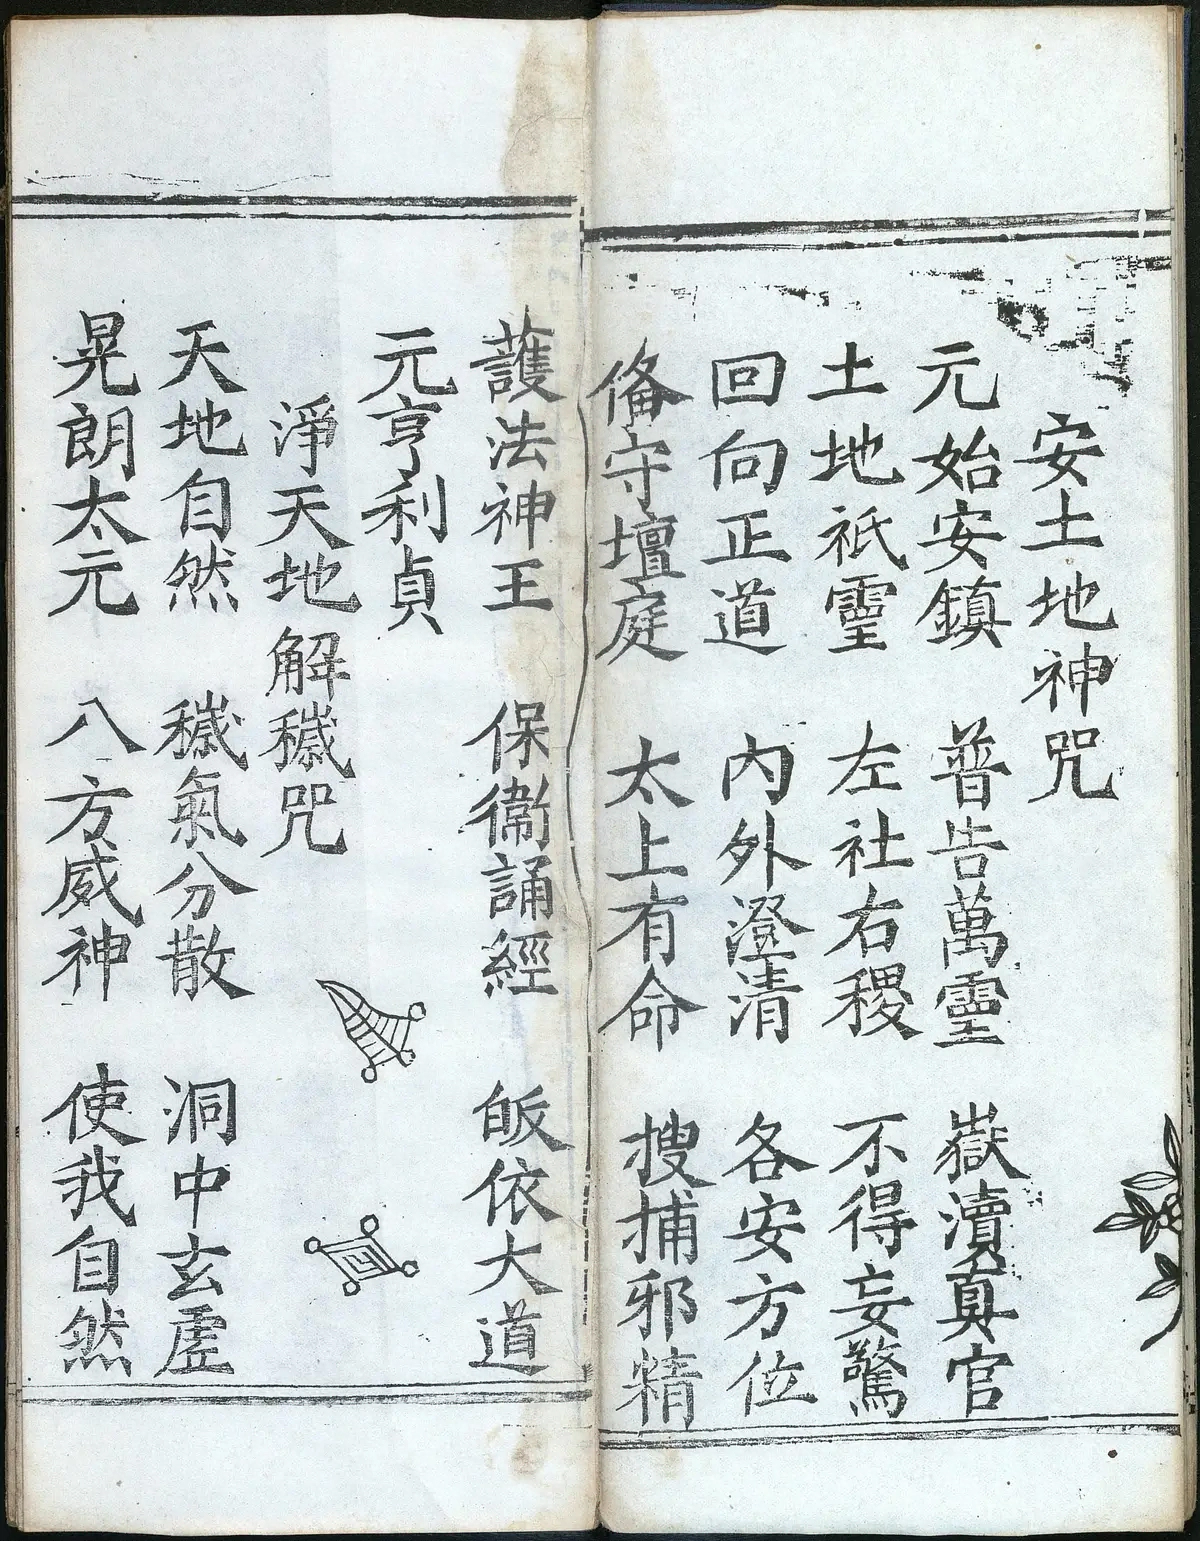 安土地神咒
元始安鎮 普告萬靈 嶽瀆真官
土地祇靈 左社右稷 不得妄驚
回向正道 內外澄清 各安方位
俻守壇庭 太上有命 搜捕邪精
護法神王 保衞誦經 皈依大道
元亨利貞
淨天地解穢咒
天地自然 穢氣分散 洞中玄虛
晃朗太元 八方威神 使我自然